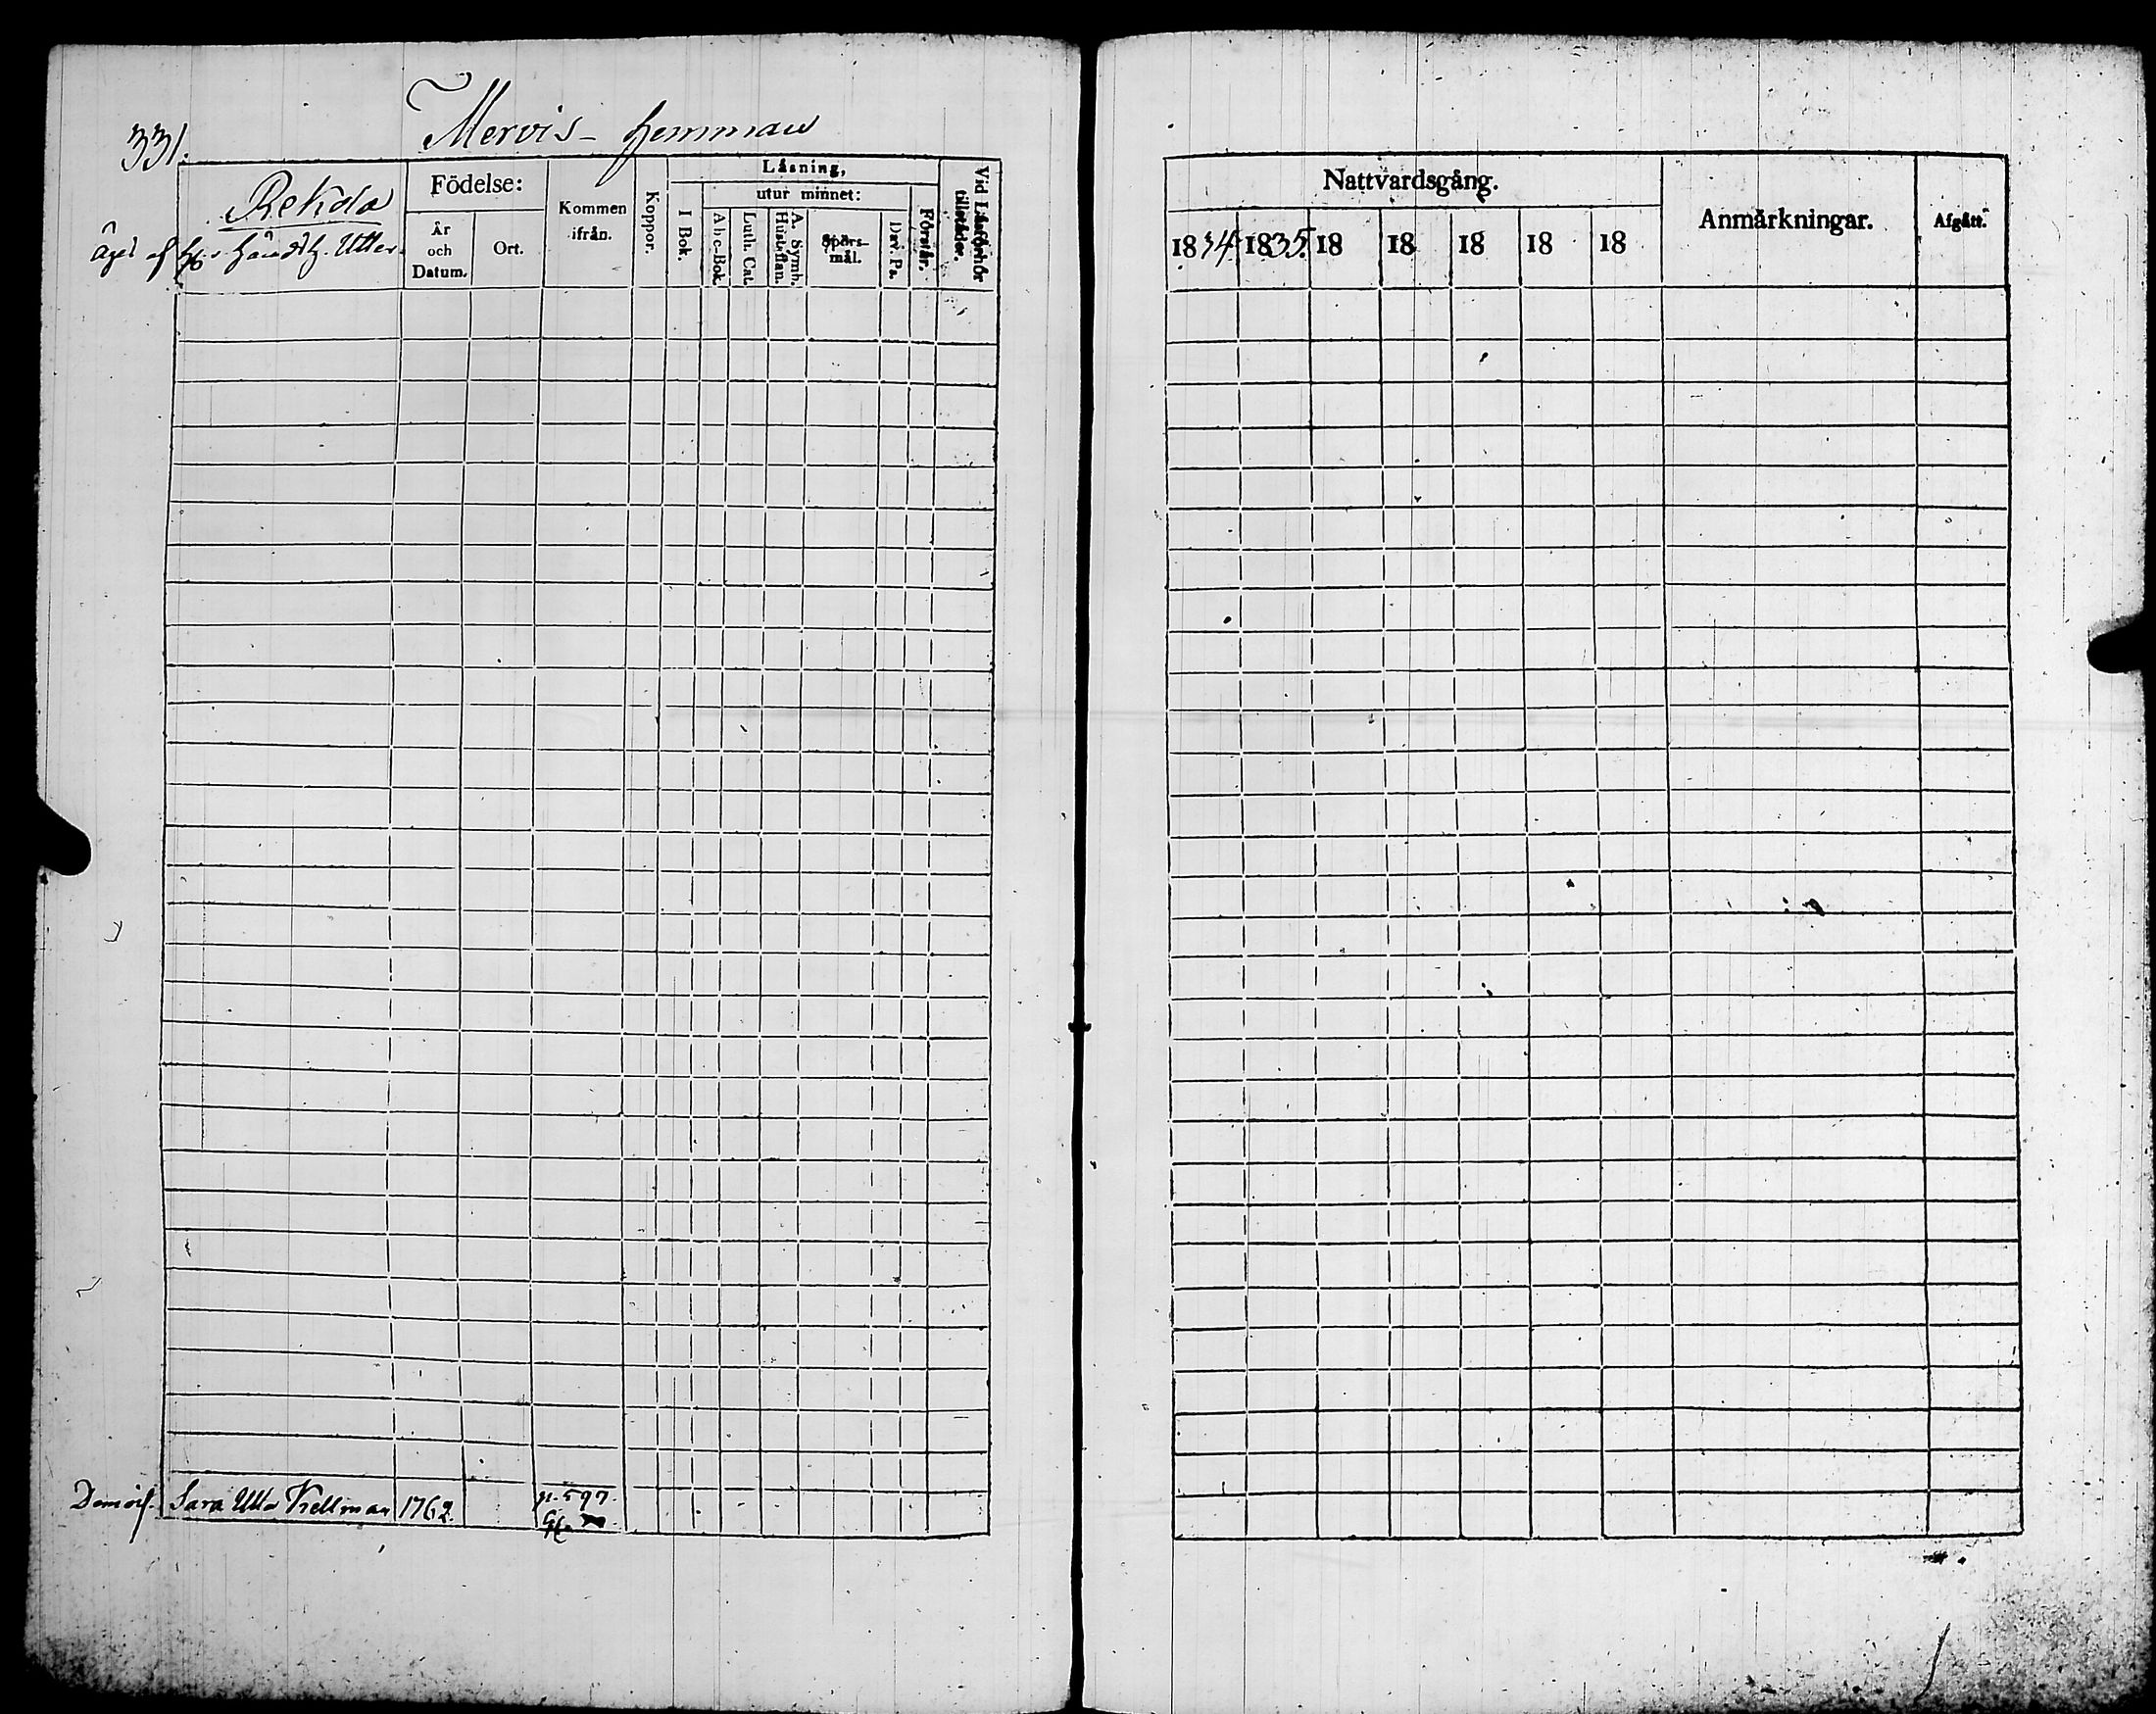 331.
Mervis- hemman
Rekola
Äges af H. Handl. Utter.
Födelse:
År och Datum.
Ort.
Kommen ifrån.
Koppor.
Läsning,
I Bok.
utur minnet:
Abc-Bok.
Luth. Cat.
A. Symb. Hustaflan.
Spörs-mål.
Dav. Ps.
Förstår.
Vid Läsförhör tillstädes.
Nattvardsgång.
1834
1835.
18
18
18
18
18
Anmärkningar.
Afgått.
Demois. Sara Ulla Kellman 1762. p. 597.